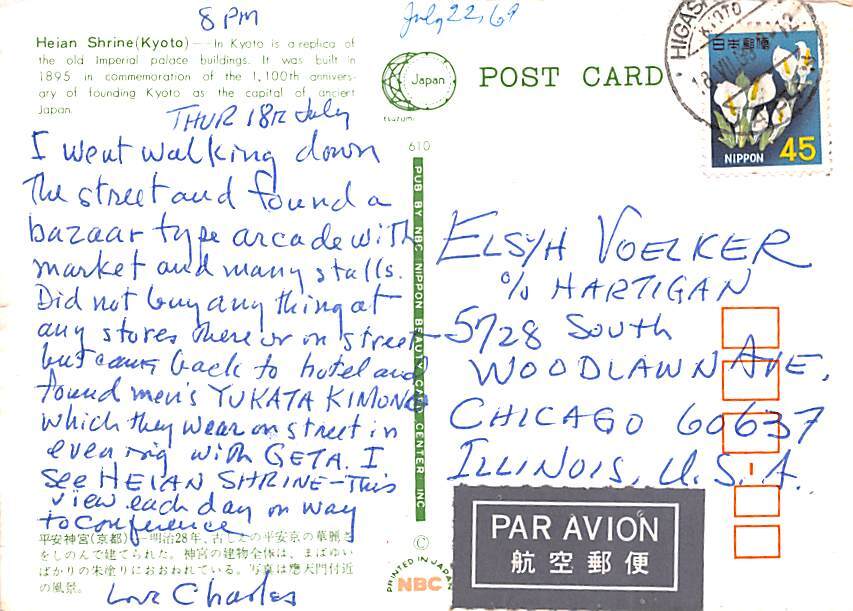 8 PM
July 22, 69
Heian Shrine (Kyoto) — In Kyoto is a replica of
the old Imperial palace buildings. It was built in
1895 in commemoration of the 1,100th annivers-
ary of founding Kyoto as the capital of ancient
Japan.
Japan
tsurumi
POST CARD
HIGAS
KYOTO
日本郵便
NIPPON 45
THUR 18th July
I went walking down
the street and found a
bazaar type arcade with
market and many stalls.
Did not buy anything at
any stores there or on street
but came back to hotel and
found men's YUKATA KIMONO
which they wear on street in
evening with GETA. I
see HEIAN SHRINE - This
view each day on way
to conference
610
PUB BY NBC NIPPON BEAUTY CARD CENTER INC
ELSYH VOELKER
c/o HARTIGAN
5728 South
WOODLAWN AVE,
CHICAGO 60637
ILLINOIS, U.S.A.
PAR AVION
航空郵便
平安神宮(京都)—明治28年、古しえの平安京の華麗さ
をしのんで建てられた。神宮の建物全体は、まばゆい
ばかりの朱塗りにおおわれている。写真は應天門付近
の風景。
Love Charles
©
PRINTED IN JAPAN
NBC